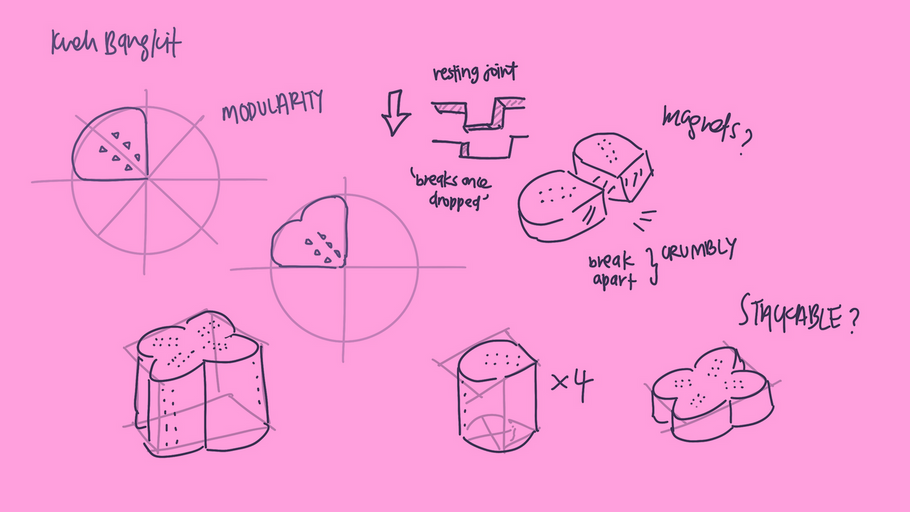 Kueh Bangkit
MODULARITY
resting joint
'breaks once
dropped'
magnets?
break
apart
CRUMBLY
STACKABLE?
x4